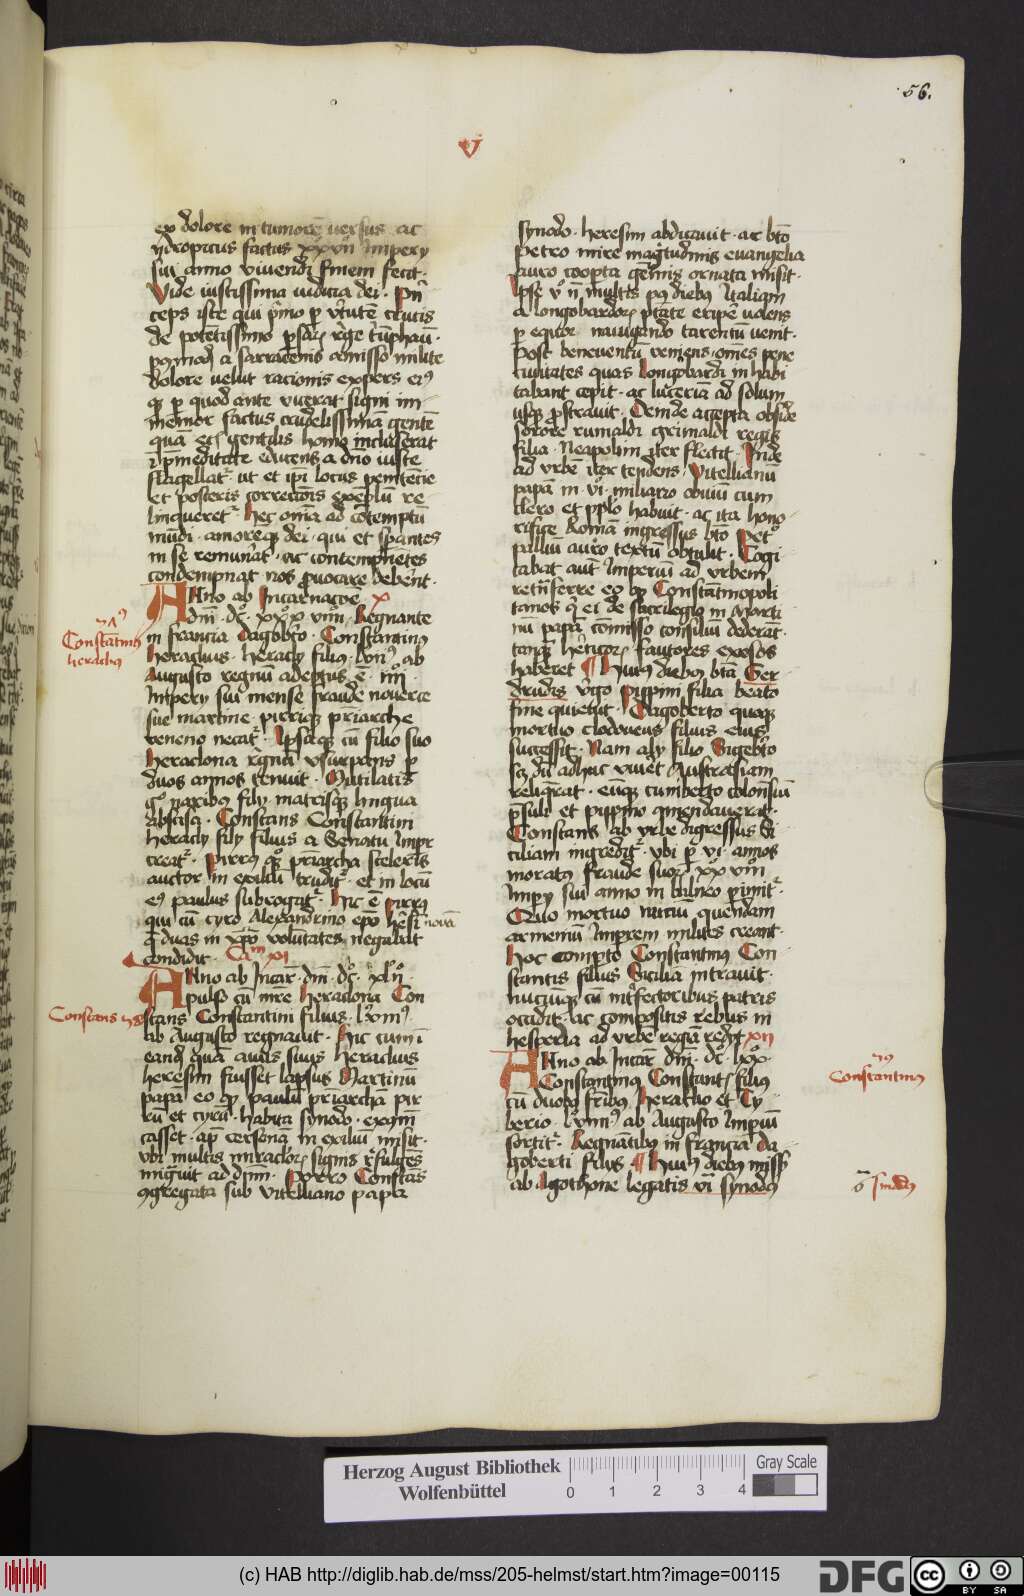 56.
V
ex dolore in tumorē uersus ac
ydropicus factus xxvii Impery
sui anno viuendi finem fecit.
Vide iustissima iudicia dei. Pn̄
ceps iste qui pͥmo p vͥtutē crucis
de potētissimo psaꝝ rͤge tͥūphauͭ.
postmodͫ a sarracenis amisso milite
dolore velut racionis expers eiꝰ
qꝫ p quod ante vicerat signi im
memor factus crudelissimā gentē
quā etͥ gentilis homo incluserat
īpͤmeditate educens a dn̄o iuste
flagellatͬ. ut et ip̄i locus penitēcie
et posteris correctōis exēplū re
linqueretͬ. Hec om̄ia ad cōtemptū
mūdi. amoreqꝫ dei. qui et spāntes
in se remunāt. ac contempnētes
condempnat nos ꝓuocare debēt.
Anno ab Incarnacōe x
dn̄i. dcͦ. xxͦxͦ viiiͦ. Regnante
in francia dagobͭto. Constantinꝰ
Heraclius. Heracly filiꝰ. lvonꝰ. ab
Augusto regnū adeptus ē. iiiiͦ.
Impery sui mense fraude nouerce
sue martine. pirriqꝫ pͣriarche
veneno necatͬ. Ipsaqꝫ cū filio suo
Heraclona rͤgna vsurpans p
duos annos tenuit. Mutilatis
gͦ naribꝰ fily matrisqꝫ lingua
abscisa. Constans Constantini
Heracly fily filius a Senatu Impr
creatͬ. pirrꝰ qͦqꝫ pͣriarcha sceleris
auctor in exiliū truditͬ. et in locū
eiꝰ paulus subrogatͬ. Hic ē pirrꝰ
qui cū cyro Alexandrino epō hēsī nouā
qͤ duas in xp̄o volūtates negabat
condidit. Caᵐ xi
Anno ab Incar. dn̄i. dcͦ. xlͦiiͦ.
pulso cū mr̄e Heraclona Con
stans Constantini filius. lxͦiiiꝰ
ab Augusto regnauit. Hic cum ī
eandͫ quā auus suus Heraclius
heresim fuisset lapsus Martinū
papā eo qͩ paulū pͣriarchā pir
rū et cyrū. habita synodo. excōi
casset. ap̄ cersonā in exiliū misit.
vbi multis miracloꝝ signis rͤfulgēs
migͣuit ad dn̄m. Porro Constās
ꝯgregata sub vitelliano papa
synodo. heresim abdicauit. ac btō
Petro mire magͥtudinis euangelia
auro coopta gēmis ornata misit.
Ipse vͦ nͫ multis pꝰ diebꝰ Italiam
a longobardoꝝ ptāte eripē uolens
p equor nauigando tarentū venit.
Post beneuentū veniens. om̄es pene
ciuitates quas longobardi in habi
tabant cepit. ac lucerīā ad solum
usqꝫ ꝓstrauit. Deinde accepta obside
sorore rumaldi Grimaldi regis
filia. Neapolim iter flectit. Inde
ad vrbē iter tendens. Vitellianū
papā in. viͦ. miliario obuiū cum
clero et pplo habuit. ac ita hono
rifice Romā ingressus btō Petͦ
palliū auro textū obtulit. Cogi
tabat autͫ Imperiū ad vrbem
retͫsferre eo qͩ Constātinopoli
tanos qͥ ei de sacrilegio in Marti
nū papā cōmisso consiliū dederāt.
tanqͫ hētícoꝝ fautores exosos
haberet ¶ Huiꝰ diebꝰ btā Ger
drudis vͥgo pippini filia beato
fine quieuit. Dagoberto quoqꝫ
mortuo clodoueus filius eius
successit. Nam aly filio Sigebͭto
scͥ dū adhuc viuēt Austrasiam
reliqͬrat. eūqꝫ cumberto coloniēsiū
pͤsuli et pippino ꝯmendauerat.
Constans ab vrbe digressus Si
ciliam ingreditͬ. vbi p vi. annos
moratꝰ fraude suoꝝ xxͦviiiͦ
Impy sui anno in balneo pimitͬ.
Quo mortuo niciū quendam
armenū Imprem milites creant.
Hoc compto Constantinus Con
stantis filius Sicilia intrauit.
niciūqꝫ cū inͭfectoribus patris
occidit. ac compositis rebus in
hesperia ad vrbē regiā redyt xii
Anno ab Incar dn̄i. dcͦ. lxͦxͦ.
Constantinꝰ Constantꝭ filiꝰ
cū duobꝰ fribꝰ Heraclio et Ty
berio. lxͦiiiiꝰ. ab Augusto Impiū
sortitͬ. Regnātibꝰ in francia da
goberti filijs ¶ Huiꝰ diebꝰ missꝭ
ab Agothone legatis vi synodꝰ
Constātinꝰ
heracliꝰ
Constans
Constantinus
Sinodus
Herzog August Bibliothek
Wolfenbüttel
0 1 2 3 4
Gray Scale
(c) HAB http://diglib.hab.de/mss/205-helmst/start.htm?image=00115
DFG
cc BY SA